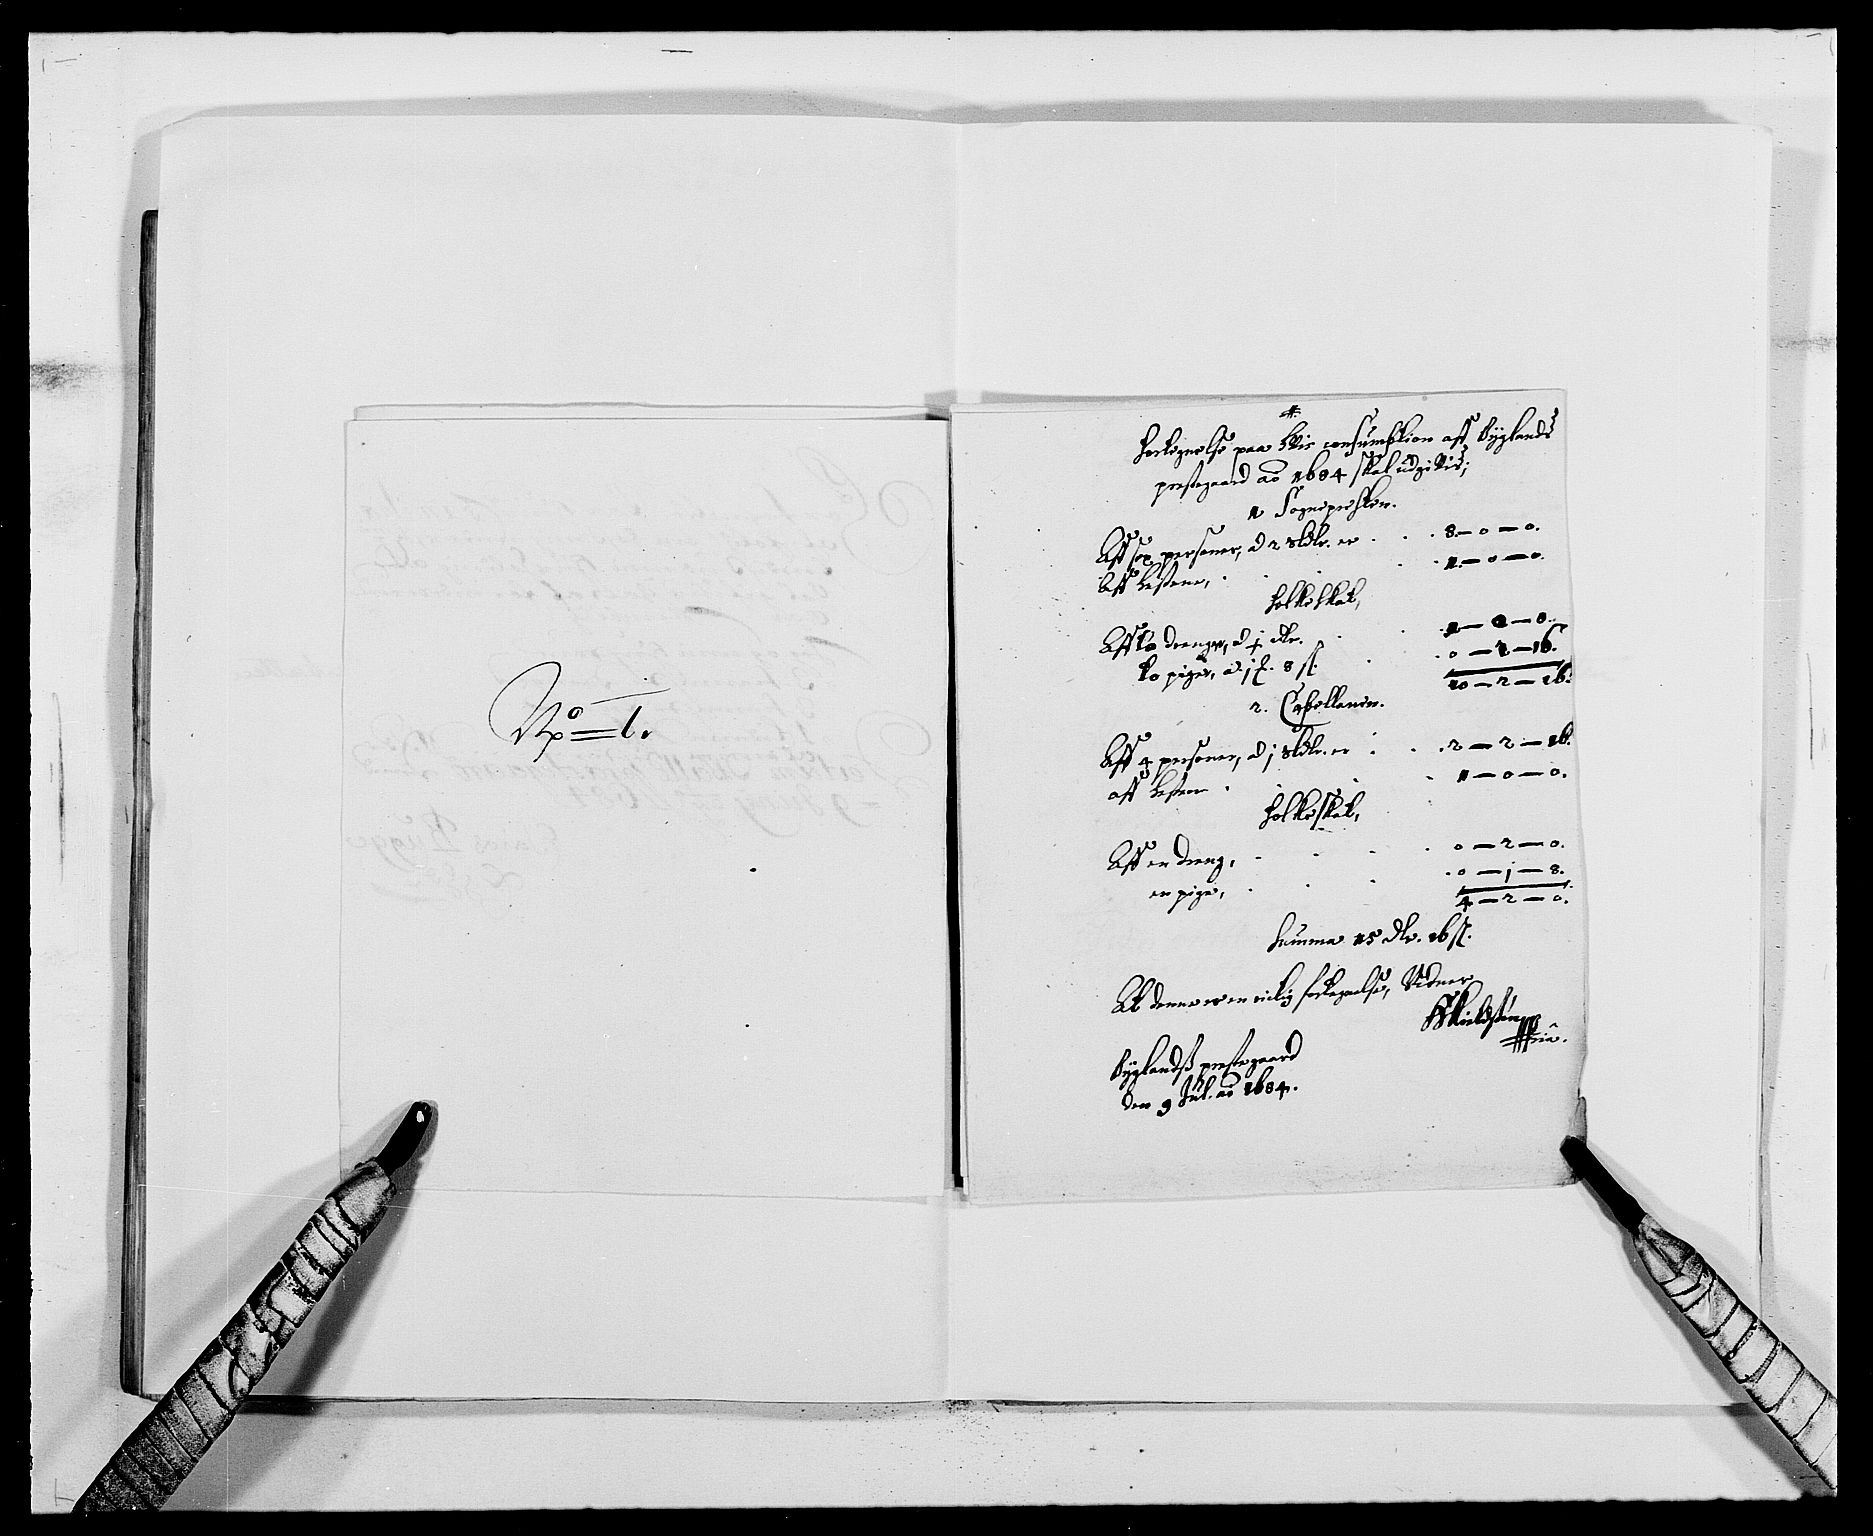 No 1.
Fortegnelse paa hvis consumption aff Byglands
prestegaard ao 1684 skal udgivis;
1 Sognepresten.
Aff sex personer, à 2 rdlr. er 8 — 0 — 0.
Aff hestene, 1 — 0 — 0.
Folkeskat,
Aff to drenge, à ½ dlr. 1 — 0 — 0.
to piger, à j ß. 8 sk. 0 — 2 — 16.
10 — 2 — 16.
2. Capellanen.
Aff 4 personer, à j rdlr. er 2 — 2 — 16.
aff hesten 1 — 0 — 0.
Folkeskat,
Aff en dreng, 0 — 2 — 0.
en pige, 0 — j — 8.
4 — 2 — 0.
Summa 15 dlr. 16 sk.
At denne er en rictig fortegnelse, Vidner
Byglands prestegaard
den 9 Jul. ao 1684.